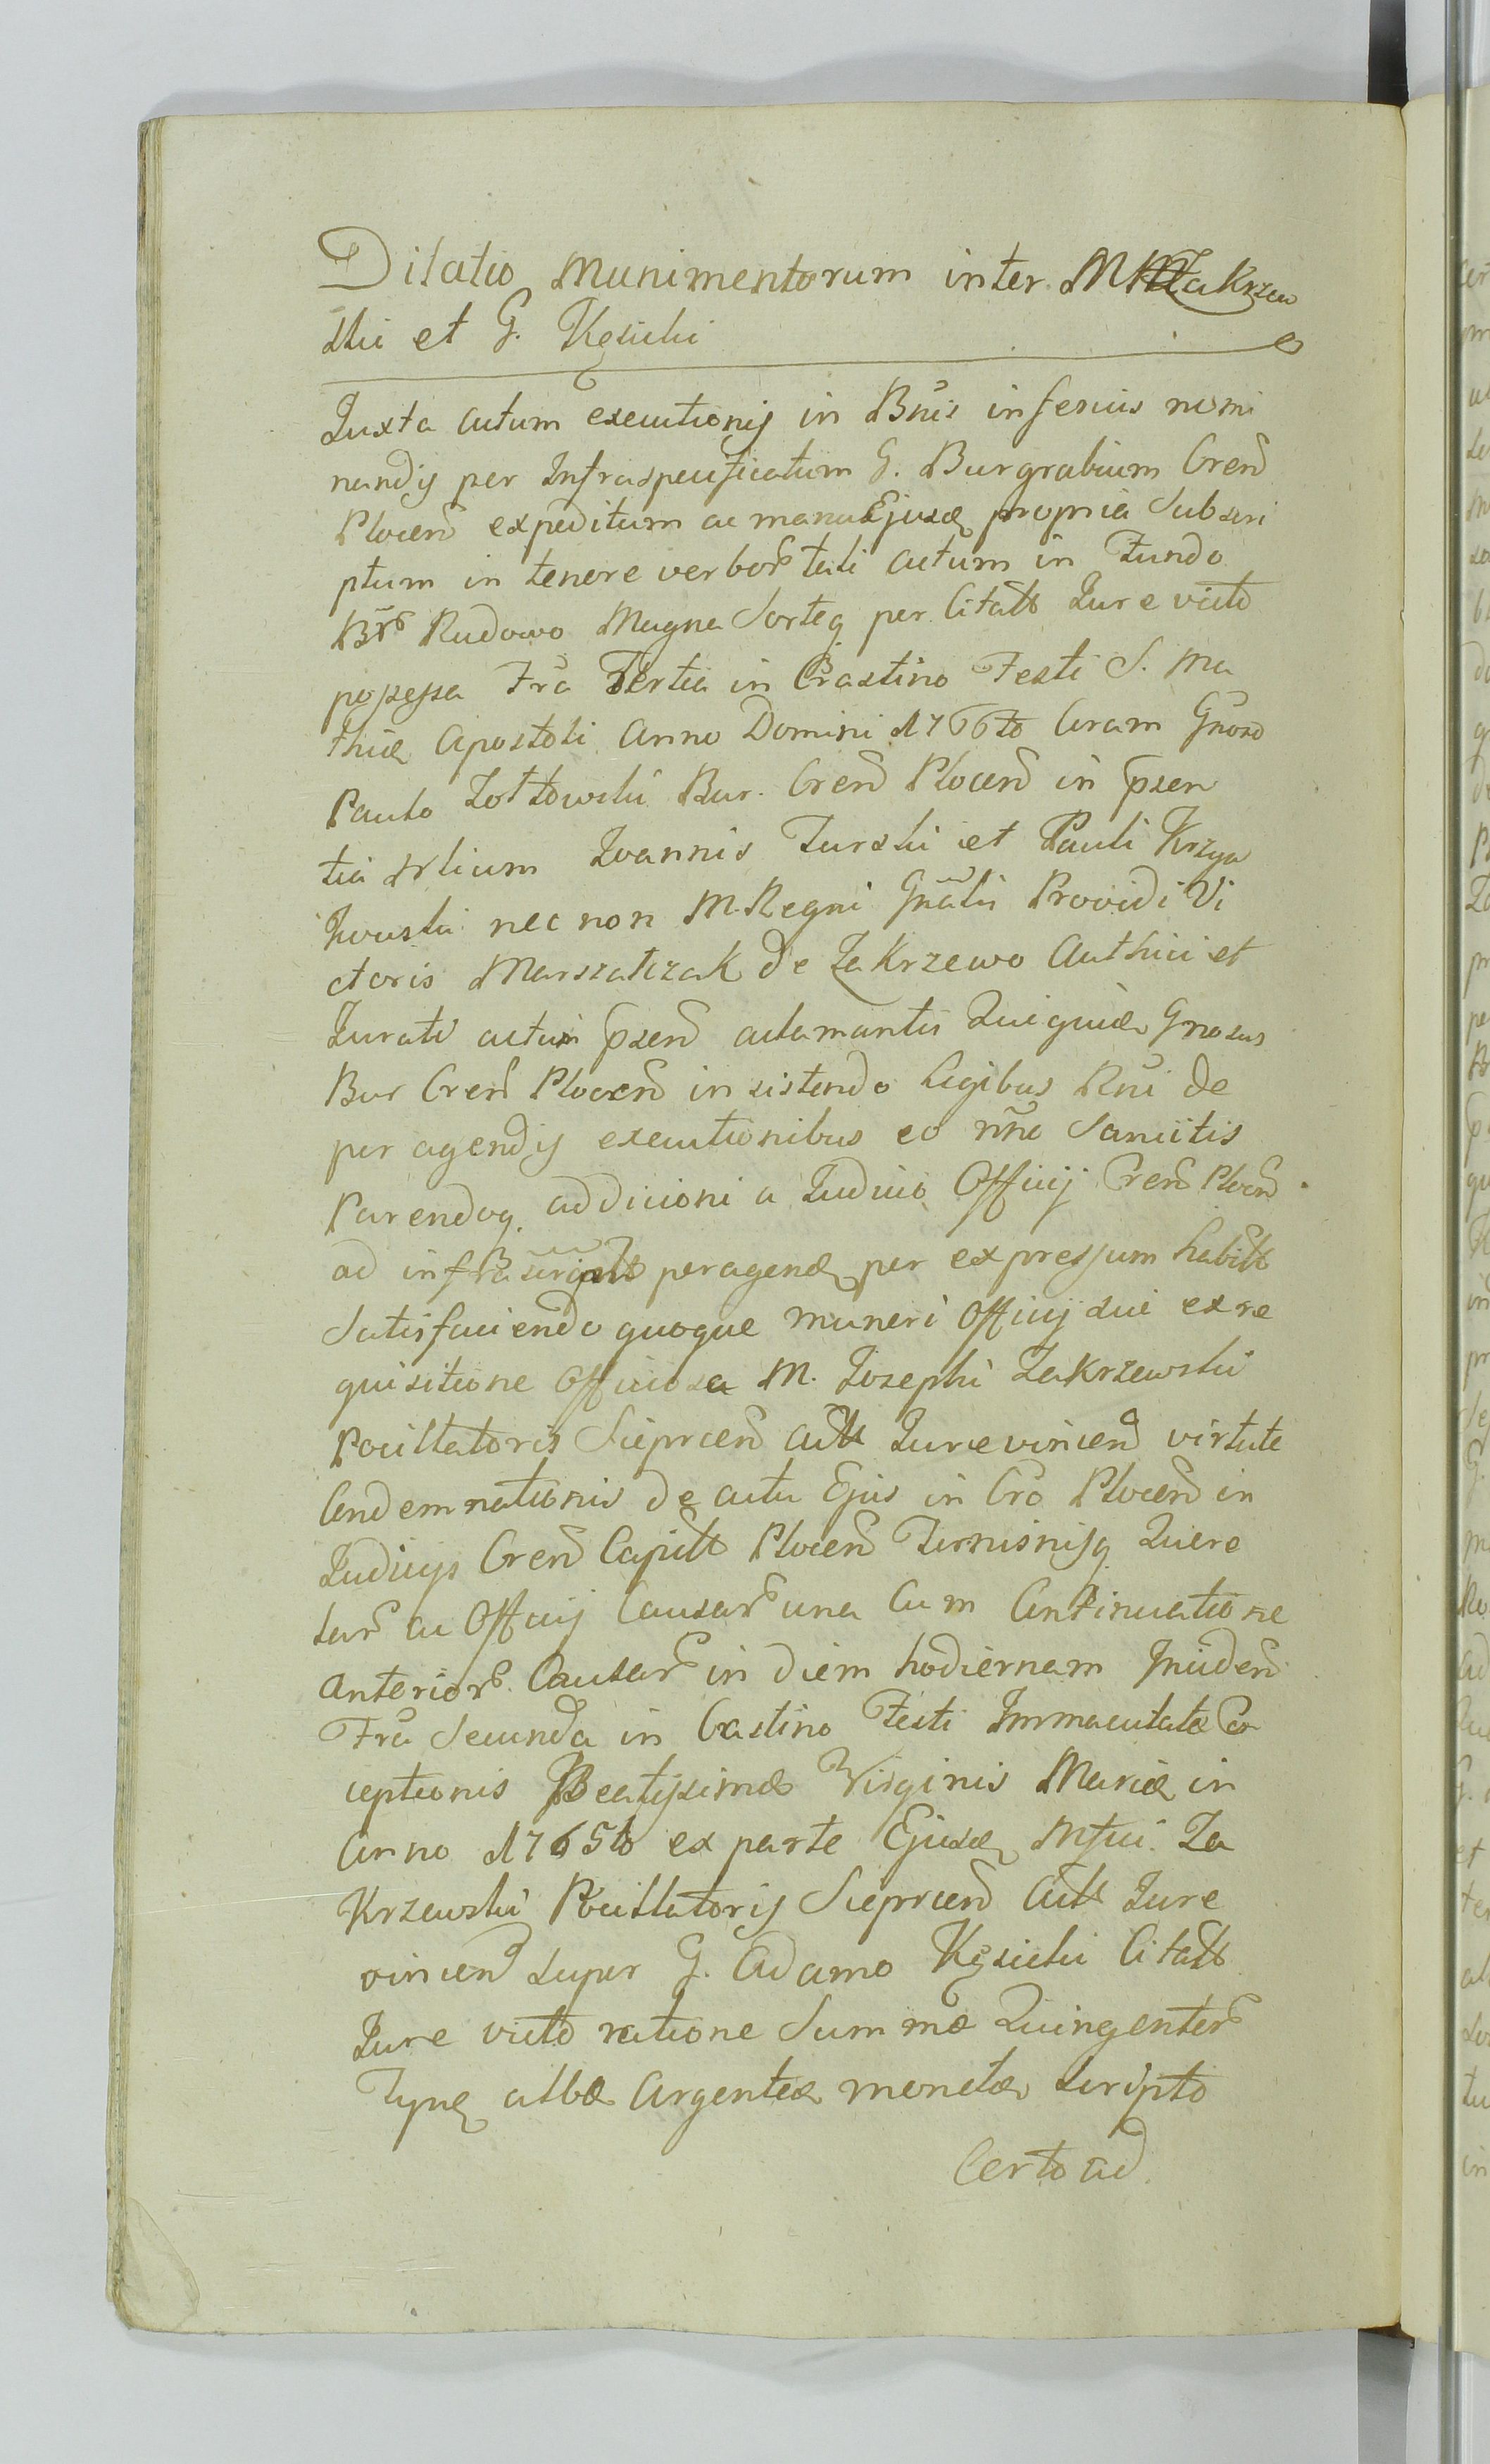 Dilatio Munimentorum inter M Zakrzew
ski et G. Kęsicki
Juxta actum executionis in Bnis inferius nomi
nandis per Infraspecificatum G. Burgrabium Cren
Plocen expeditum ac manu Ejusd propria Subscri
ptum in tenore verbor tali actum in Fundo
Bnr Rudowo Magna Sorteq per Citatt Jure victo
possessa Fra Tertia in Crastino Festi S. Ma
thiæ Apostoli Anno Domini 1766to Coram Gnoso
Paulo Zołtowski Bur. Cren Plocen in Psen
tia Nlium Joannis Turski et Pauli Krzya
kowski nec non M. Regni Gnalis Providi Vi
ctoris Marszałczak de Zakrzewo Authici et
Jurati actum Psen aclamantis Quiquid Gnosus
Bur Cren Plocen insistendo Legibus Rni de
peragendis executionibus eo nno Sancitis
Parendoq addicioni a Judicio Officij Cren Plocen
ad infra peragend per expressum habitt
Satisfaciendo quoque muneri Officij sui ex re
quisitione Officiosa M. Josephi Zakrzewski
Pocillatoris Sieprcen Actt Jurevincen virtute
Condemnationis de actu Ejus in Cro Plocen in
Judicijs Cren Capitt Plocen Terminisq Quere
lar ac Officij Causar una Cum Continuatione
anterior Causar in diem hodiernam Inciden
Fra Secunda in Crastino Festi Immaculatæ Con
ceptionis Beatissimæ Virginis Mariæ in
Anno 1765to ex parte Ejusd Mfici Za
Krzewski Pocillatoris Sieprcen Actt Jure
vincen super G. Adamo Kęsicki Citatt
Jure victo ratione Summæ Quingentor
Tynf albæ Argenteæ monetæ scripto
Certo ad